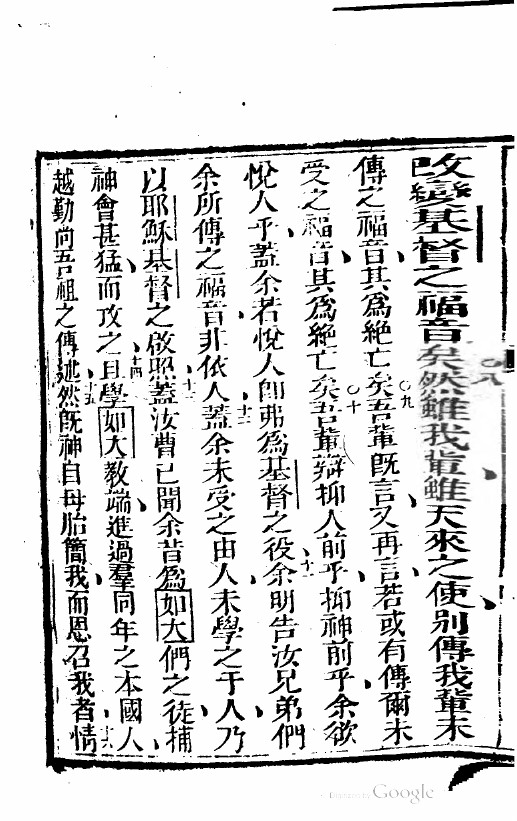 改變基督之福音矣○八然雖我輩雖天來之使別傳我輩未
傳之福音其爲絕亡矣○九吾輩旣言又再言若或有傳爾未
受之福音其爲絕亡矣○十吾輩辯抑人前乎抑神前乎余欲
悅人乎蓋余若悅人卽弗爲基督之役十一余明告汝兄弟們
余所傳之福音非依人十二蓋余未受之由人未學之于人乃
以耶穌基督之啟照十三蓋汝曹已聞余昔爲如大們之徒捕
神會甚猛而攻之十四且學如大教端進過羣同年之本國人
越勤尚吾祖之傳述十五然旣神自母胎簡我而恩召我者十六情
Digitized by Google